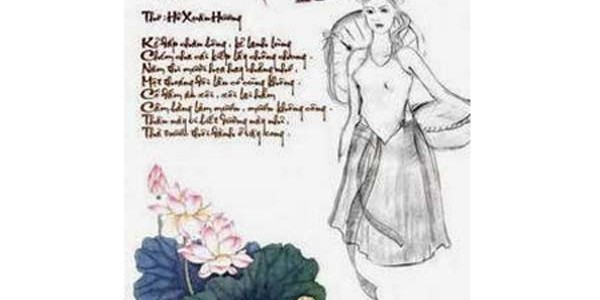 Thơ : Hồ Xuân Hương
Kẻ đắp chăn bông, kẻ lạnh lùng
Chém cha cái kiếp lấy chồng chung.
Năm thì mười họa hay chăng chớ,
Một tháng đôi lần có cũng không.
Cố đấm ăn xôi, xôi lại hẩm
Cầm bằng làm mướn, mướn không công.
Thân này ví biết dường này nhỉ,
Thà trước thôi đành ở vậy xong.